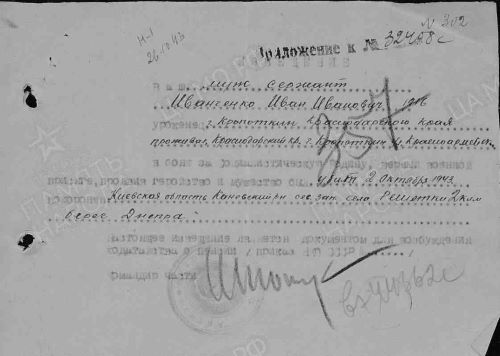 № 302
Н-1
26.10.43
Приложение к № 32408с
ИЗВЕЩЕНИЕ
Ваш мл. сержант
Иваненко Иван Иванович 1916
уроженец г. Кропоткин Краснодарского края
проживал Краснодарский кр. г. Кропоткин
в бою за социалистическую Родину, верный военной
присяге, проявив геройство и мужество был убит 2 октября 1943
Киевская область Каневский р-н зап. село Решетки 2 км
берег Днепра
Настоящее извещение является документом для возбуждения
ходатайства о пенсии / приказ НКО СССР
Командир части